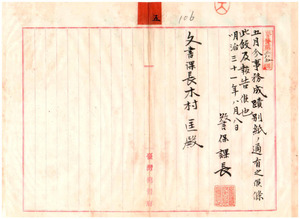 五
106
五月分事務成蹟別紙ノ通有之候條
此段及報告候也
明治三十一年八月八日
警保課長
文書課長木村匡殿